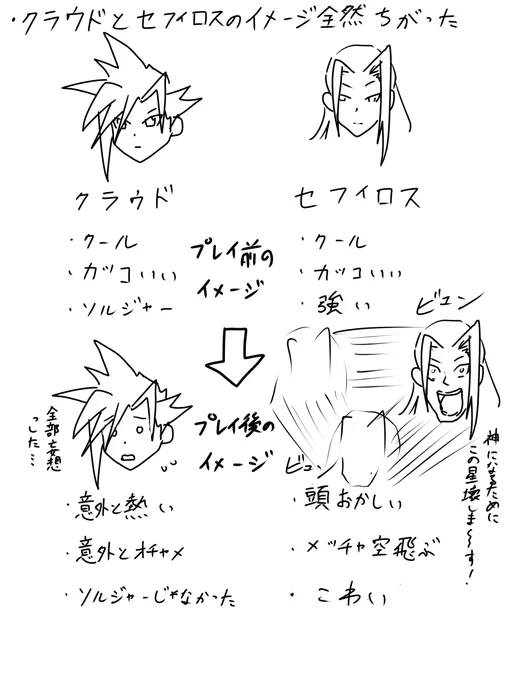 ・クラウドとセフィロスのイメージ全然ちがった
クラウド
・クール
・カッコいい
・ソルジャー
プレイ前の
イメージ
セフィロス
・クール
・カッコいい
・強い
全部妄想
っした…
プレイ後の
イメージ
ビュン
ビュン
神になるために
この星壊しま〜す!
・意外と熱い
・意外とオチャメ
・ソルジャーじゃなかった
・頭おかしい
・メッチャ空飛ぶ
・こわい